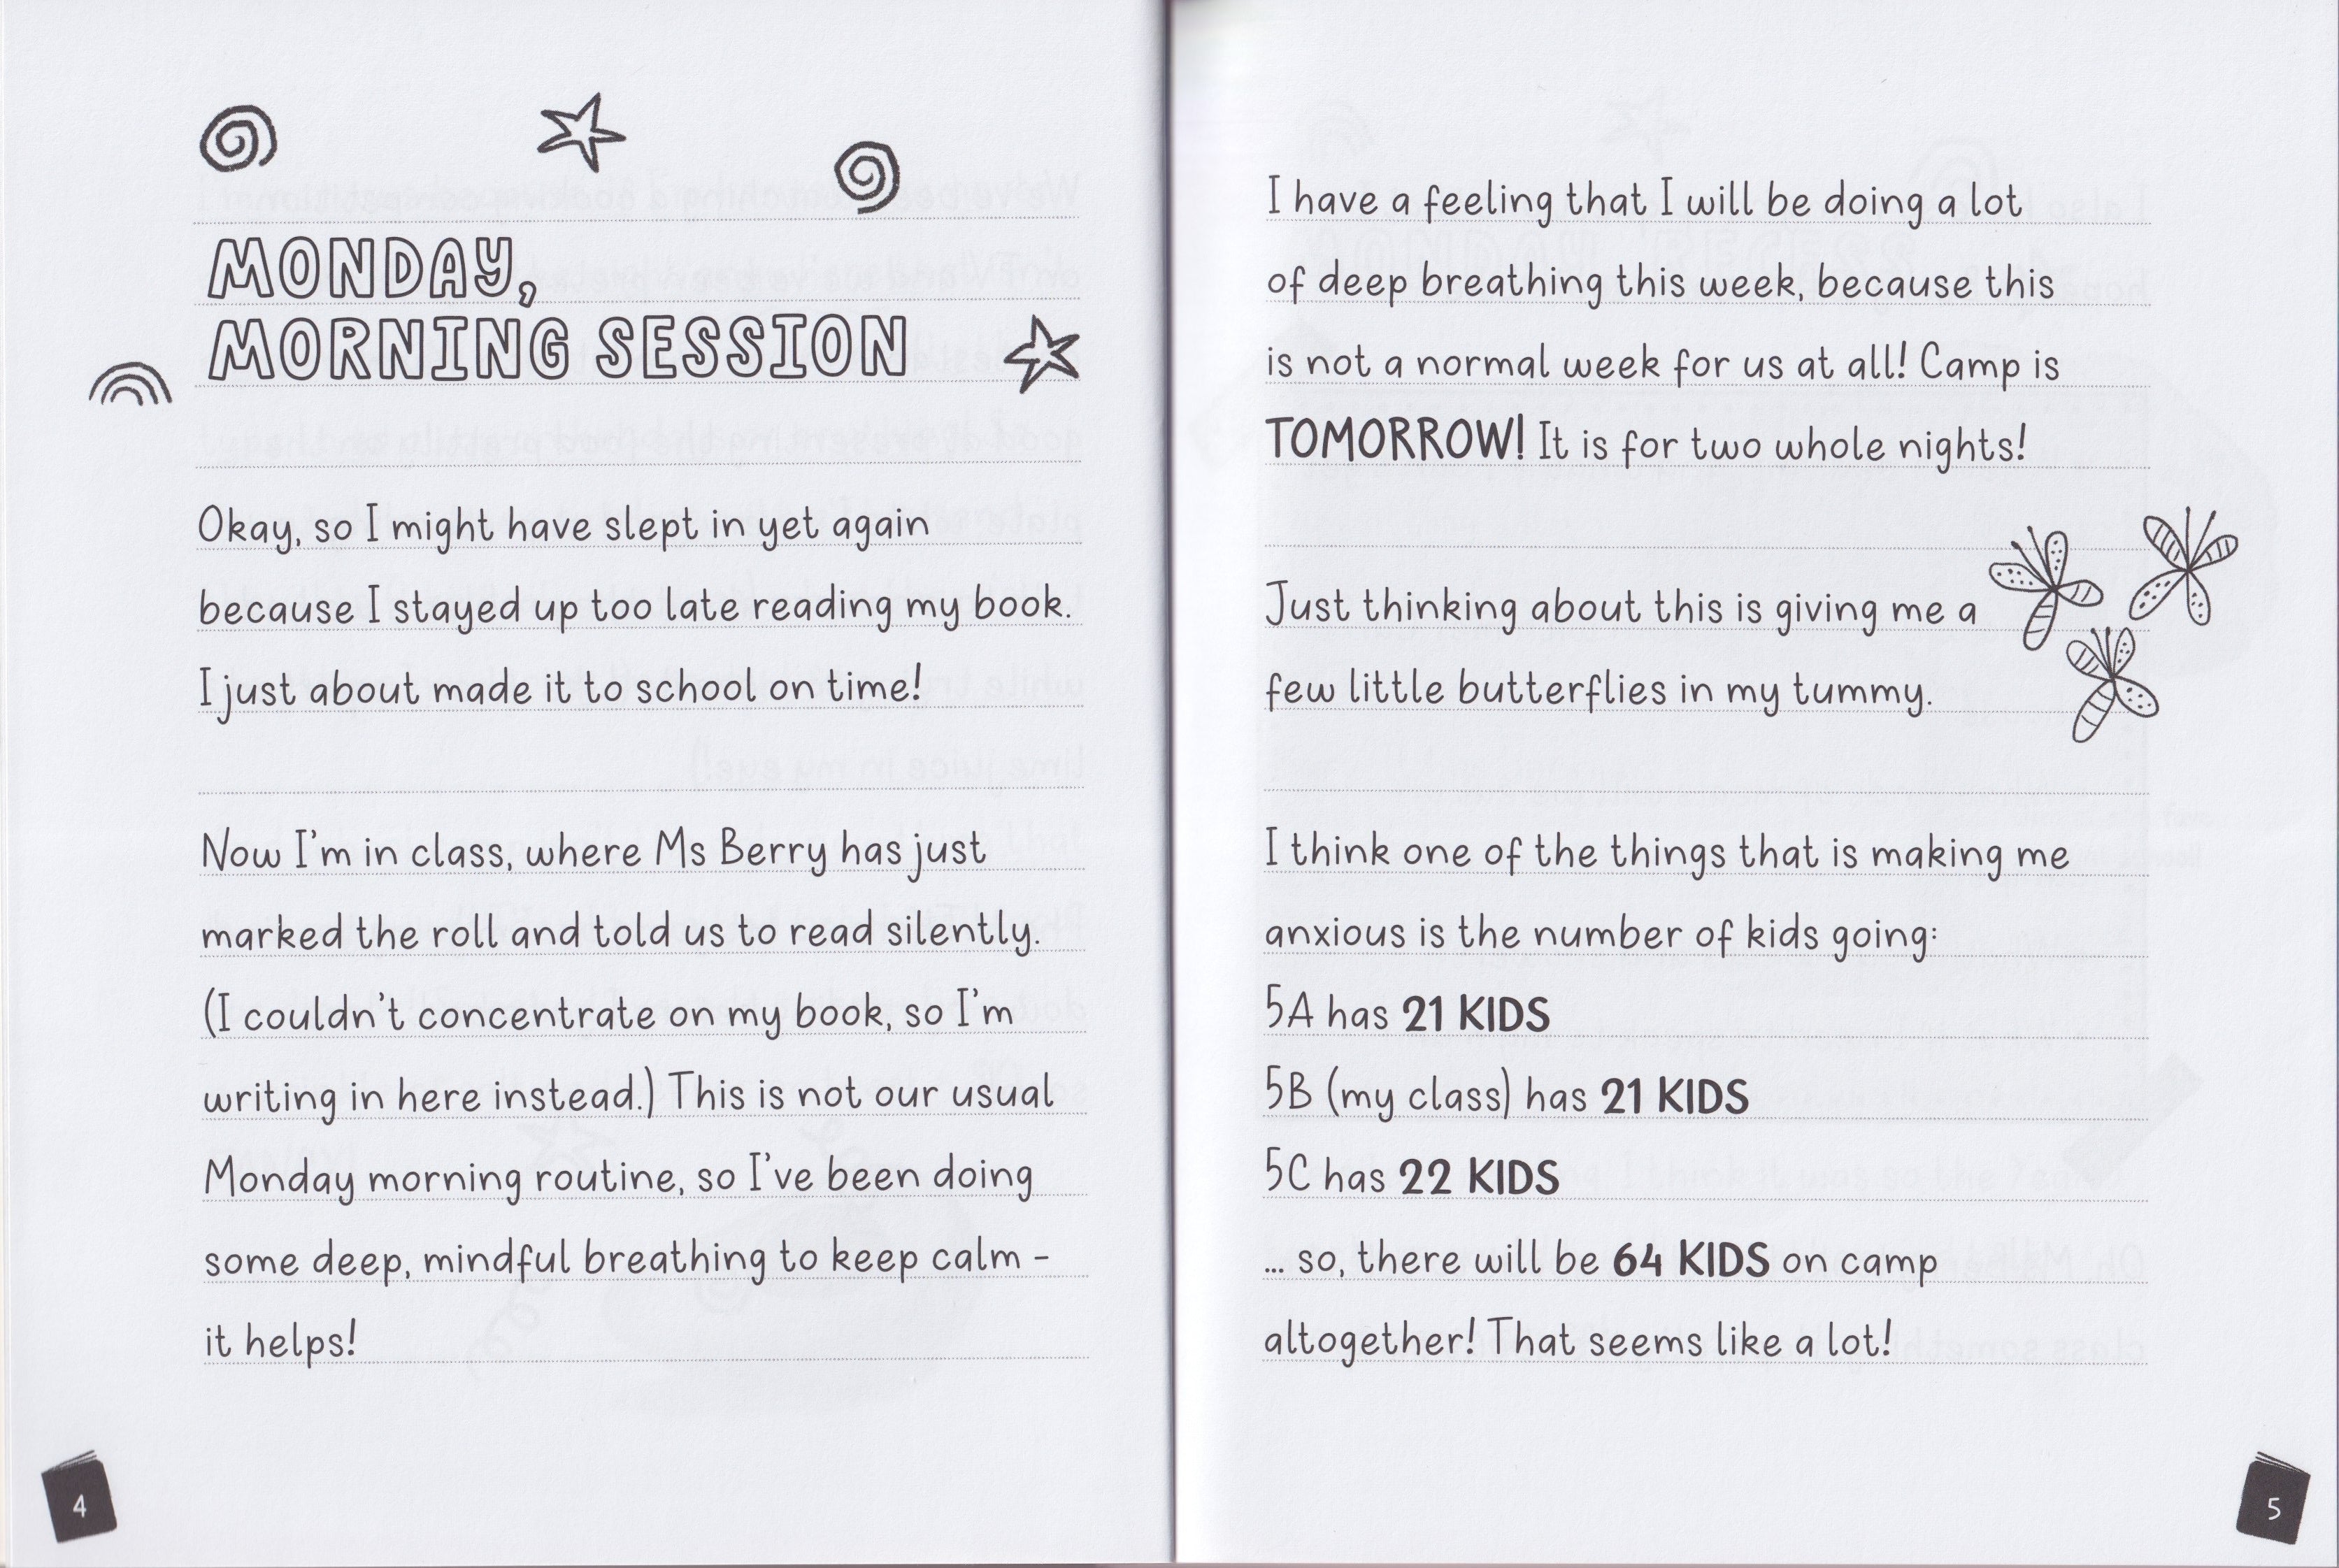 MONDAY,
MORNING SESSION
Okay, so I might have slept in yet again
because I stayed up too late reading my book.
I just about made it to school on time!
Now I'm in class, where Ms Berry has just
marked the roll and told us to read silently.
(I couldn't concentrate on my book, so I'm
writing in here instead.) This is not our usual
Monday morning routine, so I've been doing
some deep, mindful breathing to keep calm –
it helps!
4
I have a feeling that I will be doing a lot
of deep breathing this week, because this
is not a normal week for us at all! Camp is
TOMORROW! It is for two whole nights!
Just thinking about this is giving me a
few little butterflies in my tummy.
I think one of the things that is making me
anxious is the number of kids going:
5A has 21 KIDS
5B (my class) has 21 KIDS
5C has 22 KIDS
... so, there will be 64 KIDS on camp
altogether! That seems like a lot!
5